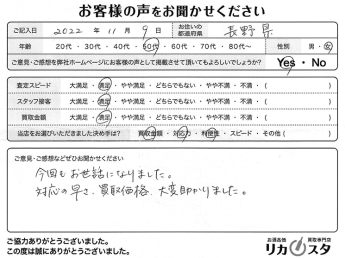 お客様の声をお聞かせください
ご記入日 2022 年 11 月 9 日 お住いの都道府県 長野県
年齢 20代・30代・40代・50代・60代・70代・80代〜 性別 男・女
ご意見・ご感想を弊社ホームページにお客様の声として掲載させて頂いてもよろしいでしょうか? Yes・No
査定スピード 大満足・満足・やや満足・どちらでもない・やや不満・不満・( )
スタッフ接客 大満足・満足・やや満足・どちらでもない・やや不満・不満・( )
買取金額 大満足・満足・やや満足・どちらでもない・やや不満・不満・( )
当店をお選びいただきました決め手は? 買取金額・対応・利便性・スピード・その他( )
ご意見・ご感想などぜひお聞かせください
今回もお世話になりました。
対応の早さ、買取価格、大変助かりました。
ご協力ありがとうございました。
この度は誠にありがとうございました。
お酒高価買取専門店
リカスタ